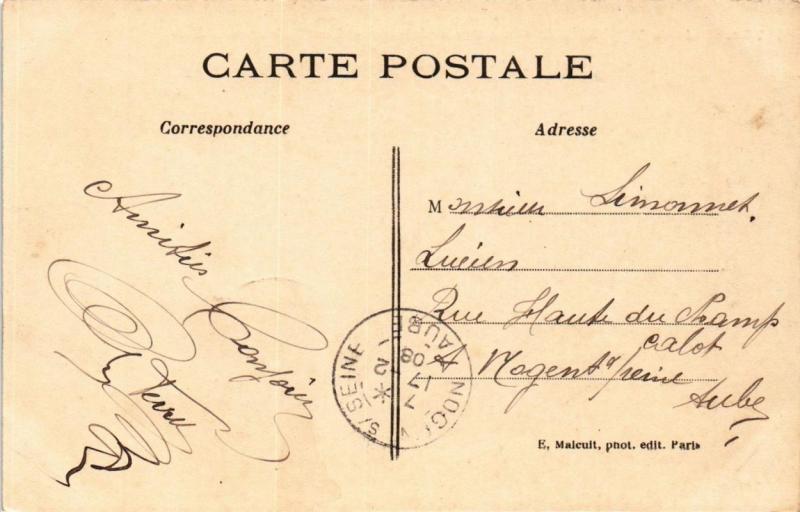 CARTE POSTALE
Correspondance
Adresse
Amitiés
Monsieur Simonnet
Lucien
Rue Haute du Champ
Calot
A Nogent s/seine
Aube
NOGENT S/SEINE
AUBE
E. Malcuit, phot. edit. Paris